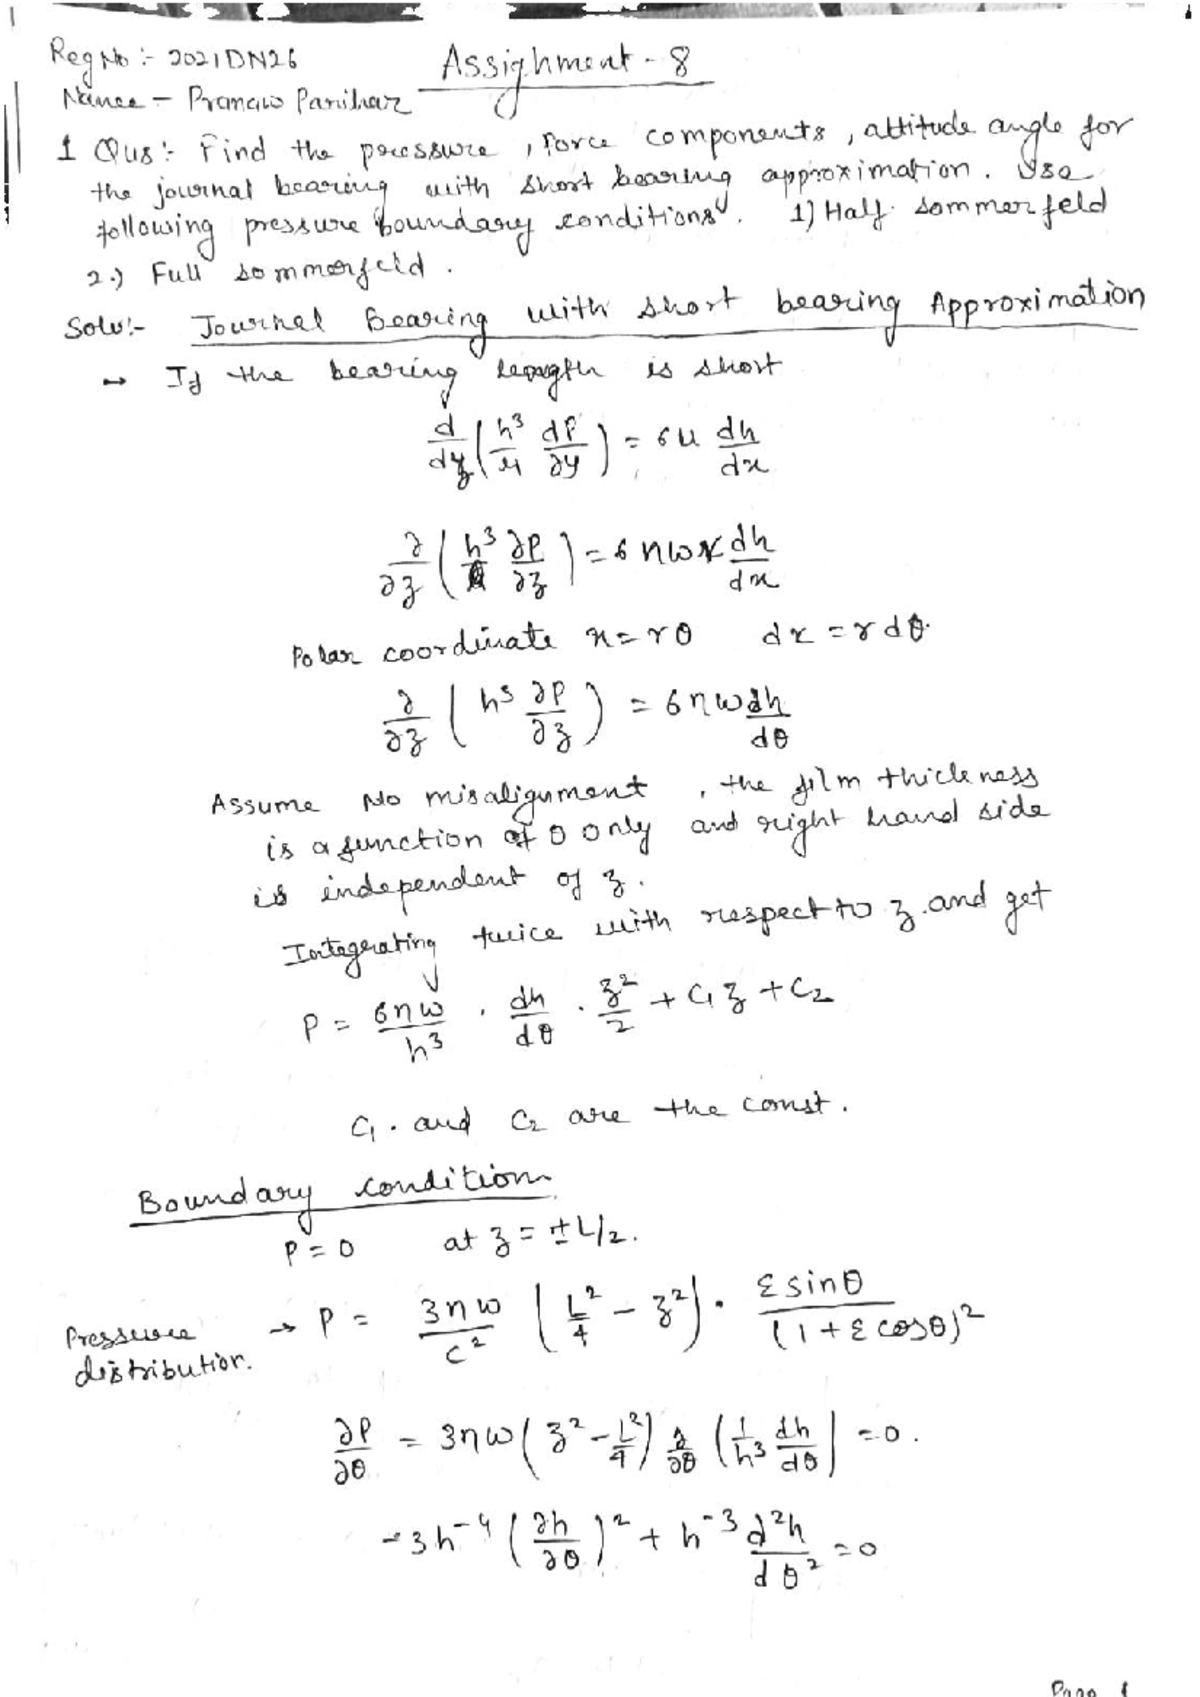 Reg No :- 2021DN26
Assighment - 8
Name - Pranaw Parihar
1 Qus :- Find the pressure, Force components, attitude angle for
the journal bearing with short bearing approximation. Use
following pressure boundary conditions. 1) Half sommerfeld
2.) Full sommerfeld.
Solu:- Journal Bearing with short bearing Approximation
→ If the bearing length is short
d/dy (h³/η dP/∂y) = 6u dh/dx
∂/∂z (h³ ∂P/∂z) = 6ηωr dh/dx
Polar coordinate x = rθ dx = rdθ
∂/∂z (h³ ∂P/∂z) = 6ηω dh/dθ
Assume No misalignment, the film thickness
is a function of θ only and right hand side
is independent of z.
Integerating twice with respect to z and get
P = 6ηω/h³ · dh/dθ · z²/2 + C₁z + C₂
C₁ and C₂ are the const.
Boundary condition
P = 0 at z = ± L/2.
Pressure distribution. → P = 3ηω/c² (L²/4 - z²) · ε sinθ/(1 + ε cosθ)²
∂P/∂θ = 3ηω (z² - L²/4) ∂/∂θ (1/h³ dh/dθ) = 0.
-3h⁻⁴ (∂h/∂θ)² + h⁻³ d²h/dθ² = 0
Page 1